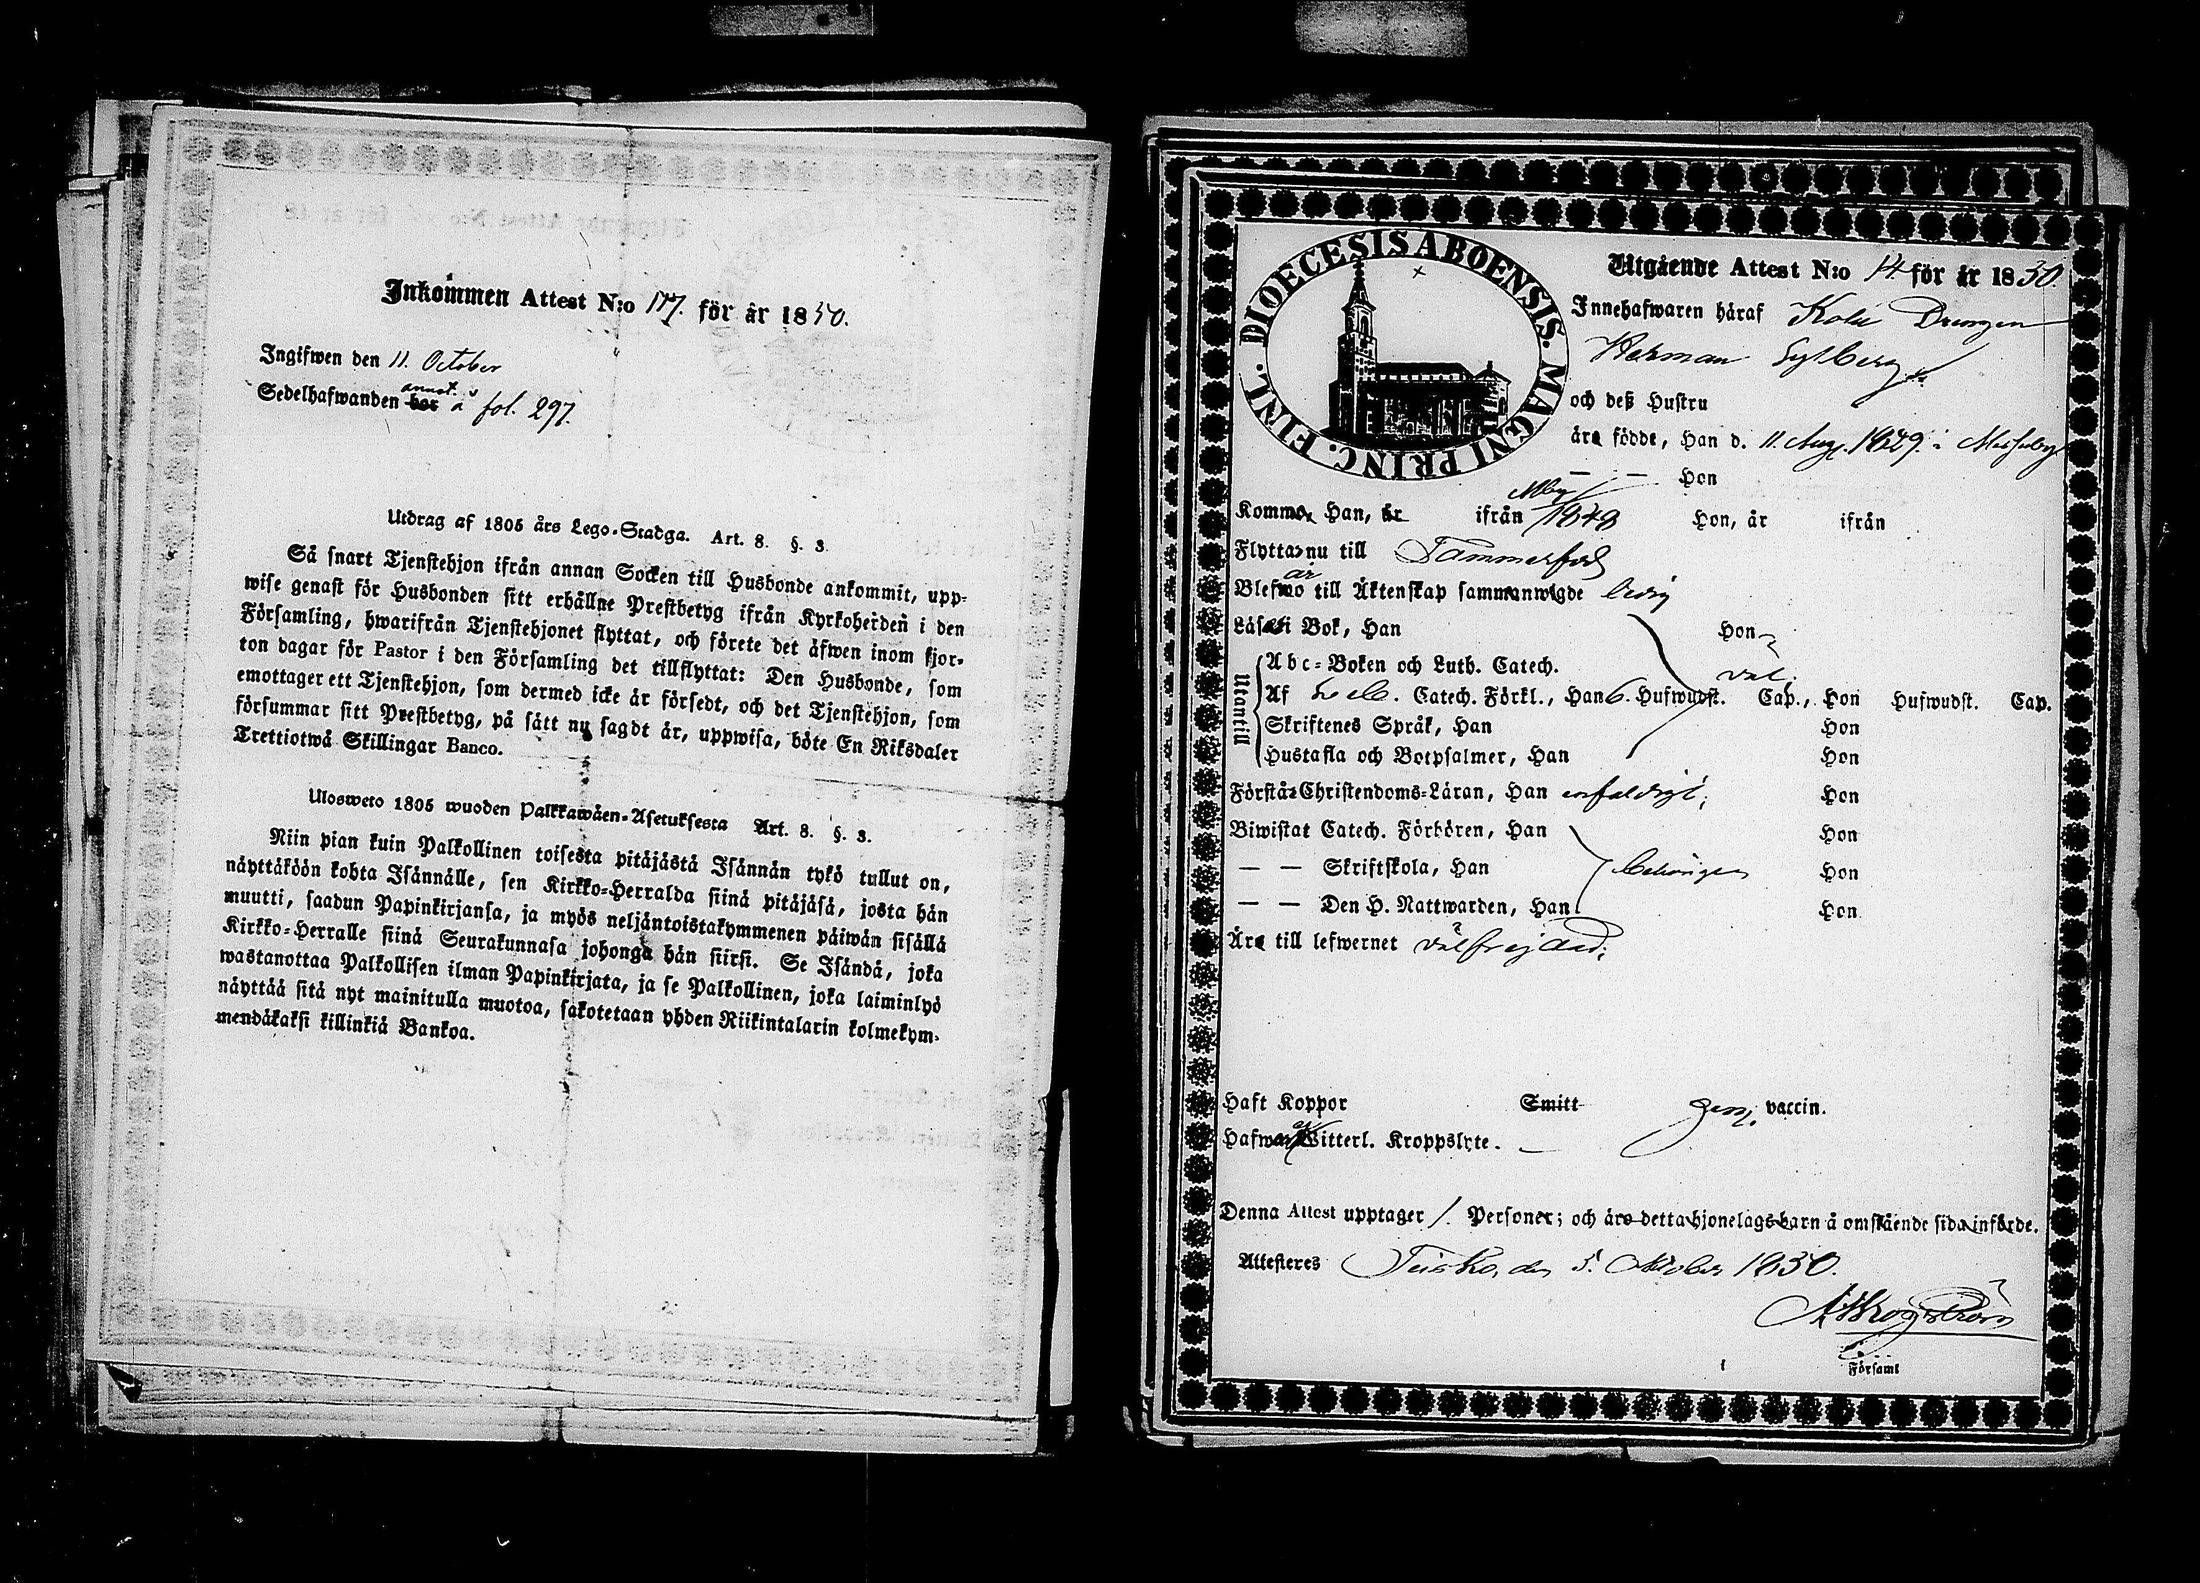 Inkommen Attest N:o 177. för år 1850.
Ingifwen den 11. October
annot.
Sedelhafwanden bor å fol. 297.
Utdrag af 1805 års Lego-Stadga. Art. 8. §. 3.
Så snart Tjenstehjon ifrån annan Socken till Husbonde ankommit, upp-
wise genast för Husbonden sitt erhållne Prestbetyg ifrån Kyrkoherden i den
Församling, hwarifrån Tjenstehjonet flyttat, och förete det äfwen inom fjor-
ton dagar för Pastor i den Församling det tillflyttat: Den Husbonde, som
emottager ett Tjenstehjon, som dermed icke är försedt, och det Tjenstehjon, som
försummar sitt Prestbetyg, på sätt nu sagdt är, uppwisa, böte En Riksdaler
Trettiotwå Skillingar Banco.
Ulosweto 1805 wuoden Palkkawäen-Asetuksesta Art. 8. §. 3.
Niin pian kuin Palkollinen toisesta pitäjästä Isännän tykö tullut on,
näyttäköön kohta Isännälle, sen Kirkko-Herralda siinä pitäjäsä, josta hän
muutti, saadun Papinkirjansa, ja myös neljäntoistakymmenen päiwän sisällä
Kirkko-Herralle siinä Seurakunnasa johonga hän siirsi. Se Isändä, joka
wastanottaa Palkollisen ilman Papinkirjata, ja se Palkollinen, joka laiminlyö
näyttää sitä nyt mainitulla muotoa, sakotetaan yhden Riikintalarin kolmekym-
mendäkaksi killinkiä Bankoa.
DIOECESIS ABOENSIS. MAGNI PRINC. FINL.
Utgående Attest N:o 14 för år 1850.
Innehafwaren häraf Drengen
Herman
och deß Hustru
äro födde, Han d. 11. Aug. 1829. i Messuby
— — Hon
Komme, Han, år ifrån 1848 Hon, år ifrån
Flyttas nu till Tammerfors
är
Blefwo till Äktenskap sammanwigde ledig
Läsa i Bok, Han Hon
Utantill
Abc-Boken och Luth. Catech. väl.
Af Catech. Förkl., Han 6. Hufwudst. Cap., Hon Hufwudst. Cap.
Skriftenes Språk, Han Hon
Hustafla och Botpsalmer, Han Hon
Förstår Christendoms-Läran, Han enfaldigt; Hon
Biwistat Catech. Förhören, Han Hon
— — Skriftskola, Han behörigen Hon
— — Den H. Nattwarden, Han Hon
Äro till lefwernet välfrejdad;
Haft Koppor Smitt genj. vaccin.
Hafwa Witterl. Kroppslyte. —
Denna Attest upptager 1. Personer; och äro detta hjonelags barn å omstående sida införde.
Attesteres Teisko, den 5. Oktober 1850.
Församl